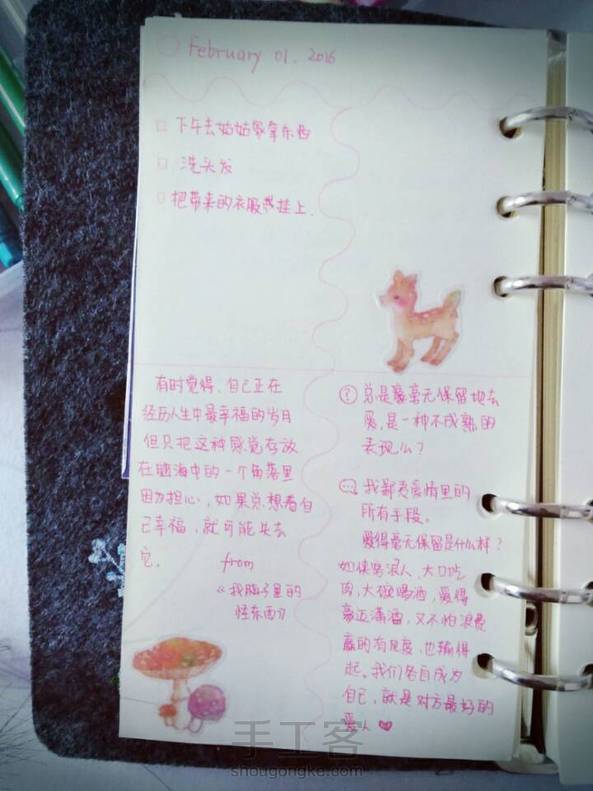 February 01. 2016
下午去姑姑家拿东西
洗头发
把带来的衣服挂上.
有时觉得、自己正在
经历人生中最幸福的岁月
但只把这种感觉存放
在脑海中的一个角落里
因为担心，如果总想着自
己幸福，就可能失去
它。
from
《我脖子里的
怪东西》
? 总是毫无保留地去
爱，是一种不成熟的
表现么？
我鄙夷爱情里的
所有手段。
爱得毫无保留是什么样？
如侠客浪人、大口吃
肉，大碗喝酒，爱得
豪迈潇洒，又不怕浪费
赢的有风度，也输得
起。我们各自成为
自己，就是对方最好的
爱人
手工客
shougongke.com